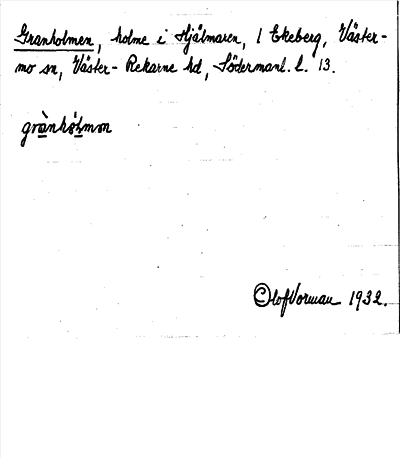 Granholmen, holme i Hjälmaren, 1 Ekeberg, Väster-
mo sn, Väster-Rekarne hd, Södermanl. l. 13.
grànhòlmen
Olof Vorman 1932.